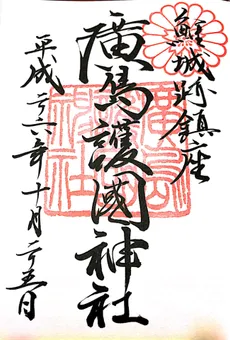 鯉城跡鎮座
廣島護國神社
平成二六年十月二五日
廣島
神社